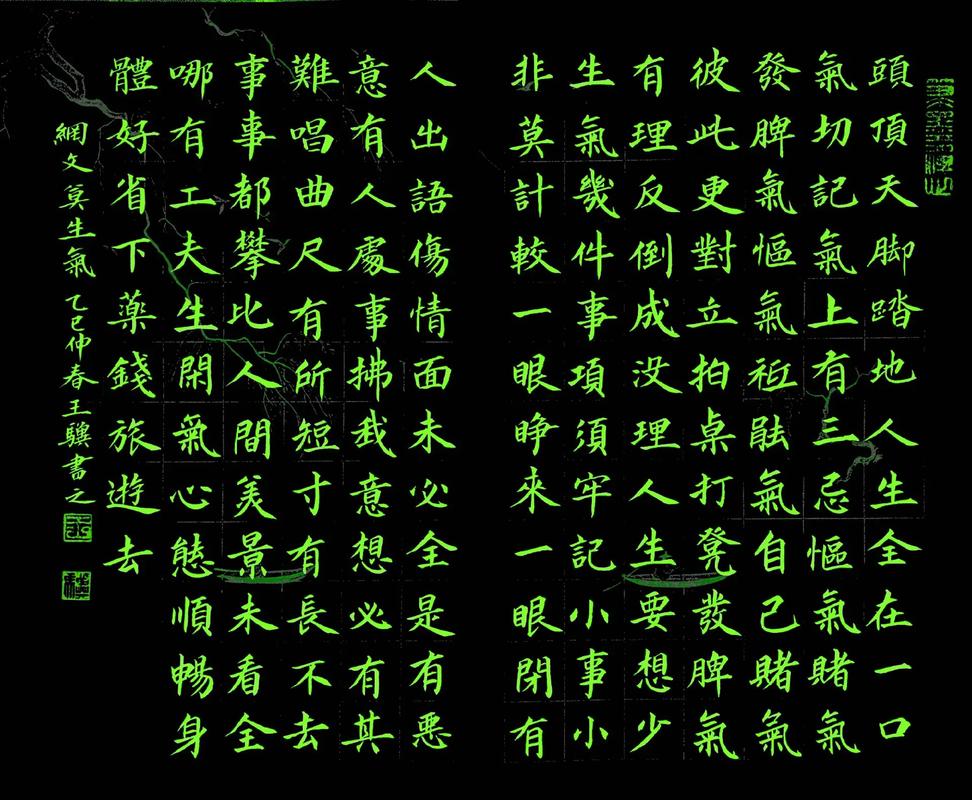 頭頂天脚踏地人生全在一口
氣切記氣上有三忌慪氣賭氣
發脾氣慪氣祗能氣自己賭氣
彼此更對立拍桌打凳發脾氣
有理反倒成没理人生要想少
生氣幾件事項須牢記小事小
非莫計較一眼睁來一眼閉有
人出語傷情面未必全是有惡
意有人處事拂我意想必有其
難唱曲尺有所短寸有長不去
事事都攀比人間美景未看全
哪有工夫生閑氣心態順暢身
體好省下藥錢旅遊去
網文莫生氣 乙巳仲春王驥書之